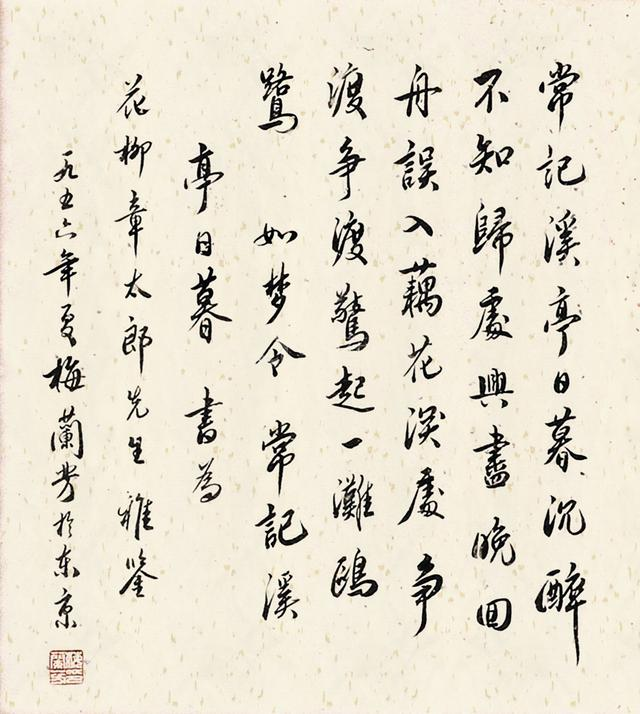 常記溪亭日暮沉醉
不知歸處興盡晚回
舟誤入藕花深處爭
渡爭渡驚起一灘鷗
鷺　如梦令　常記溪
亭日暮　書為
花柳章太郎先生雅鑒
一九五六年夏梅蘭芳於东京